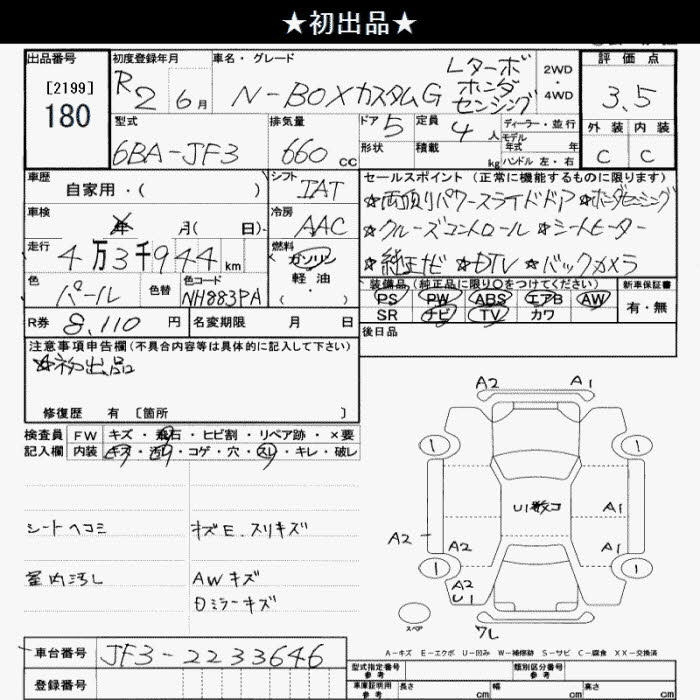 ★初出品★
出品番号
[2199]
180
初度登録年月
R2 6月
車名・グレード
N-BOXカスタムG
Lターボ
ホンダ
センシング
2WD
4WD
評価点
3.5
外装 内装
C C
型式
6BA-JF3
排気量
660 CC
ドア
5
形状
定員
4人
積載
kg
ディーラー・並行
モデル
年式 年
ハンドル 左・右
車歴
自家用・( )
シフト
IAT
車検
年 月( 日)
冷房
AAC
走行
4万3千944km
燃料
ガソリン
軽油
( )
色
パール
色替
色コード
NH883PA
R券 8,110 円
名変期限 月 日
セールスポイント(正常に機能するものに限ります)
☆両側パワースライドドア ☆ホンダセンシング
☆クルーズコントロール ☆シートヒーター
☆純正ナビ ☆DTV ☆バックカメラ
装備品(純正品に限り○をつけてください)
PS PW ABS エアB AW
SR ナビ TV カワ
新車保証書
有・無
後日品
注意事項申告欄(不具合内容等は具体的に記入して下さい)
☆初出品
修復歴 有 [箇所 ]
検査員
記入欄
FW キズ・飛石・ヒビ割・リペア跡・×要
内装 キズ・汚れ・コゲ・穴・スレ・キレ・破レ
シートヘコミ
キズE.スリキズ
室内汚し
AWキズ
Dミラーキズ
A2 A1
1 1
U1数コ
A1
A2
A2 A1
1 1
A2
U1
スペア
ワレ
A-キズ E-エクボ U-凹み W-補修跡 S-サビ C-腐食 XX-交換済
車台番号 JF3-2233646
登録番号
型式指定番号
参考
類別区分番号
参考
車庫証明用
参考
長さ cm 幅 cm 高さ cm